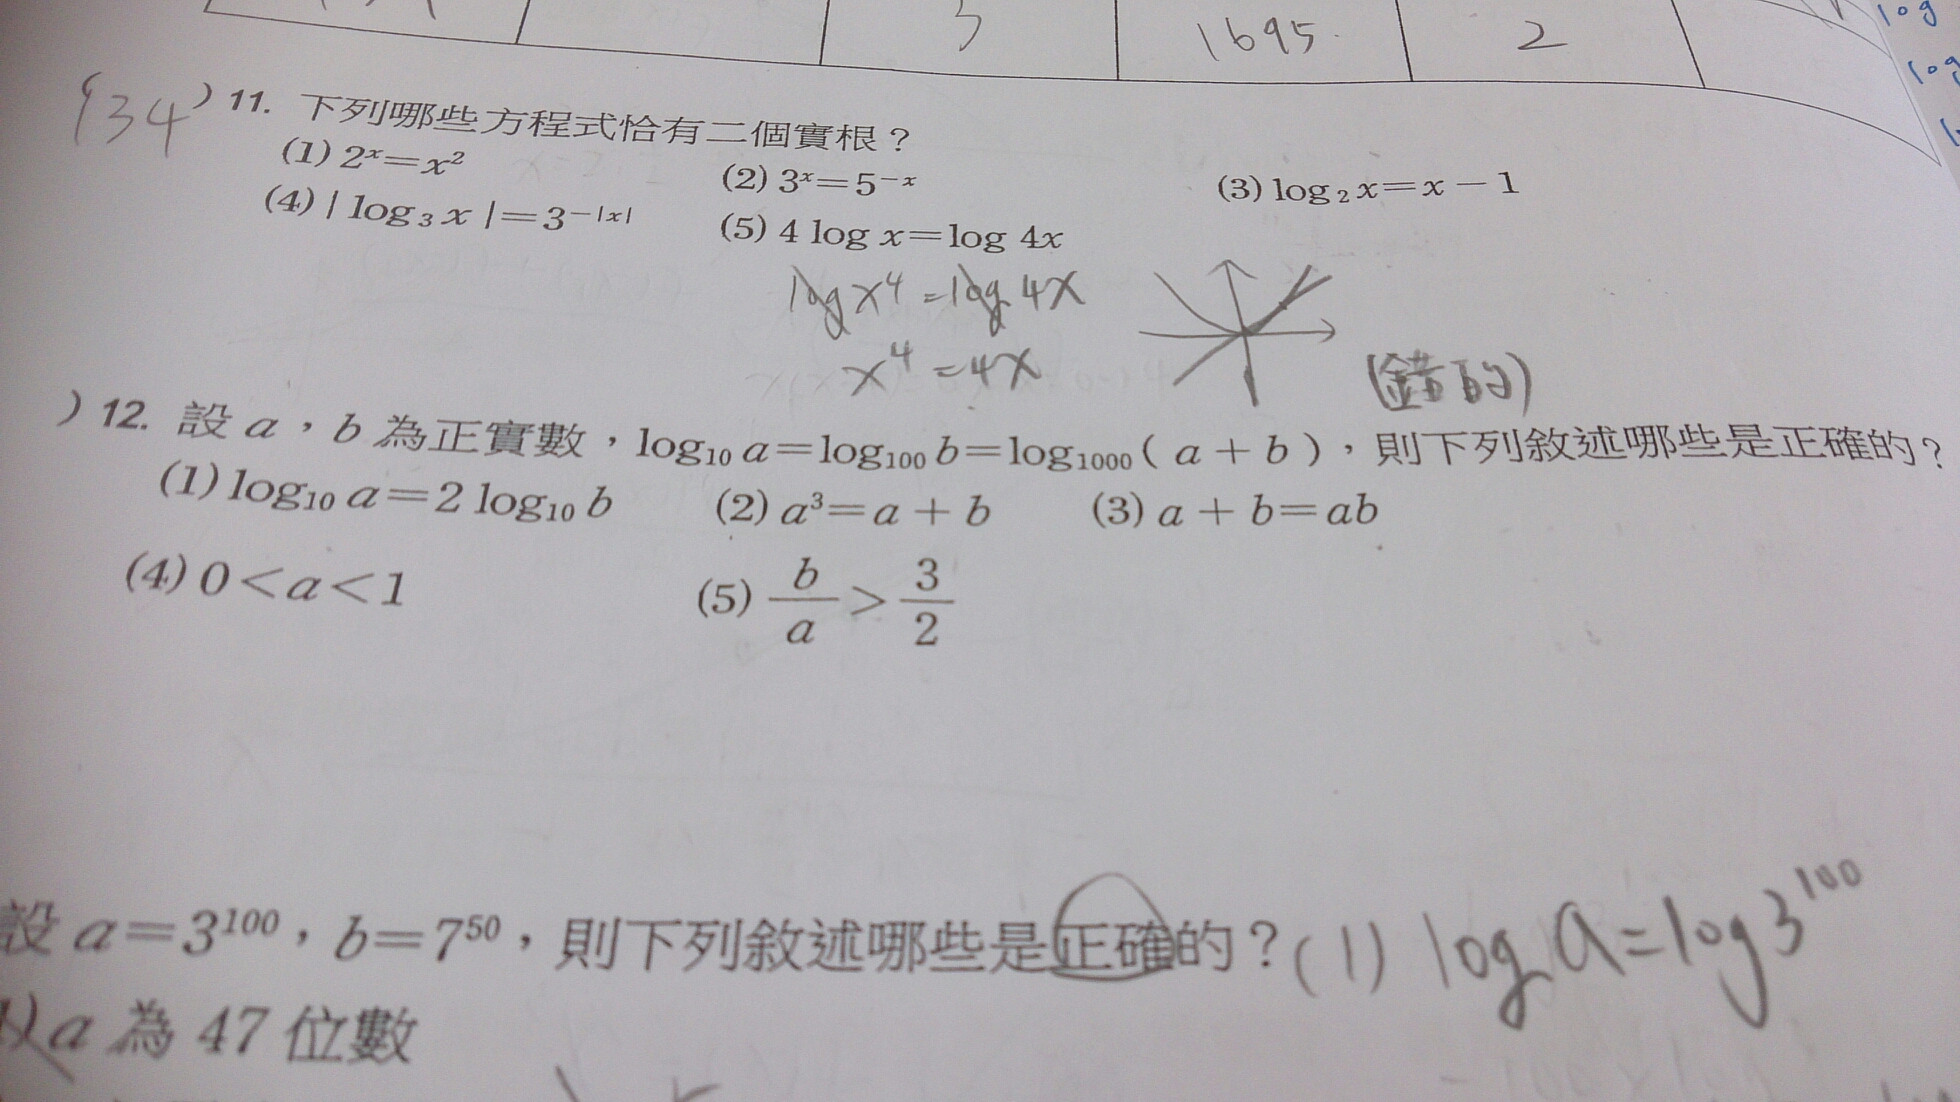 3 1695 2
log
log
(34 ) 11. 下列哪些方程式恰有二個實根？
(1) 2ˣ＝x² (2) 3ˣ＝5⁻ˣ (3) log₂ x＝x－1
(4) | log₃ x |＝3^－|x| (5) 4 log x＝log 4x
log x⁴ = log 4x
x⁴ = 4x (錯的)
) 12. 設 a，b 為正實數，log₁₀ a＝log₁₀₀ b＝log₁₀₀₀ ( a ＋ b )，則下列敘述哪些是正確的？
(1) log₁₀ a＝2 log₁₀ b (2) a³＝a ＋ b (3) a ＋ b＝ab
(4) 0＜a＜1 (5) b/a ＞ 3/2
設 a＝3¹⁰⁰，b＝7⁵⁰，則下列敘述哪些是正確的？(1) log a = log 3¹⁰⁰
a 為 47 位數